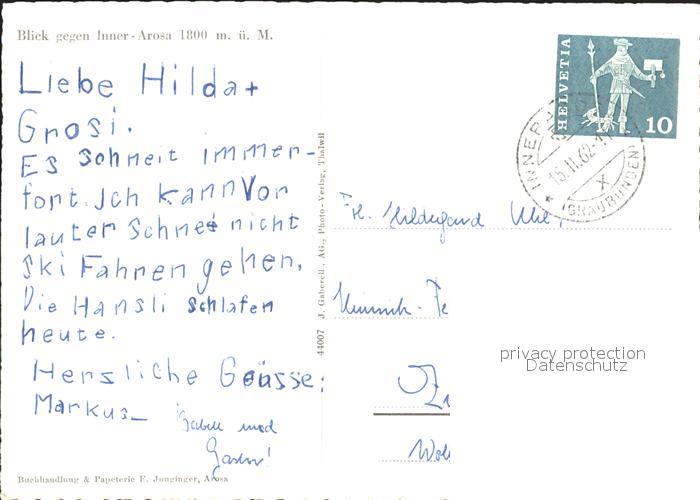 Blick gegen Inner-Arosa 1800 m. ü. M.
Liebe Hilda +
Grosi.
Es Schneit immer-
fort. Ich kann Vor
lauter Schnee nicht
Ski Fahren gehen.
Die Hansli schlafen
heute.
Herzliche Grüsse:
Markus
und
Buchhandlung & Papeterie F. Junginger, Arosa
44007 J. Gaberell, AG., Photo-Verlag, Thalwil
HELVETIA
10
INNER-
15.11.62-11
X
(GRAUBÜNDEN)
Frl. Hildegard
privacy protection
Datenschutz